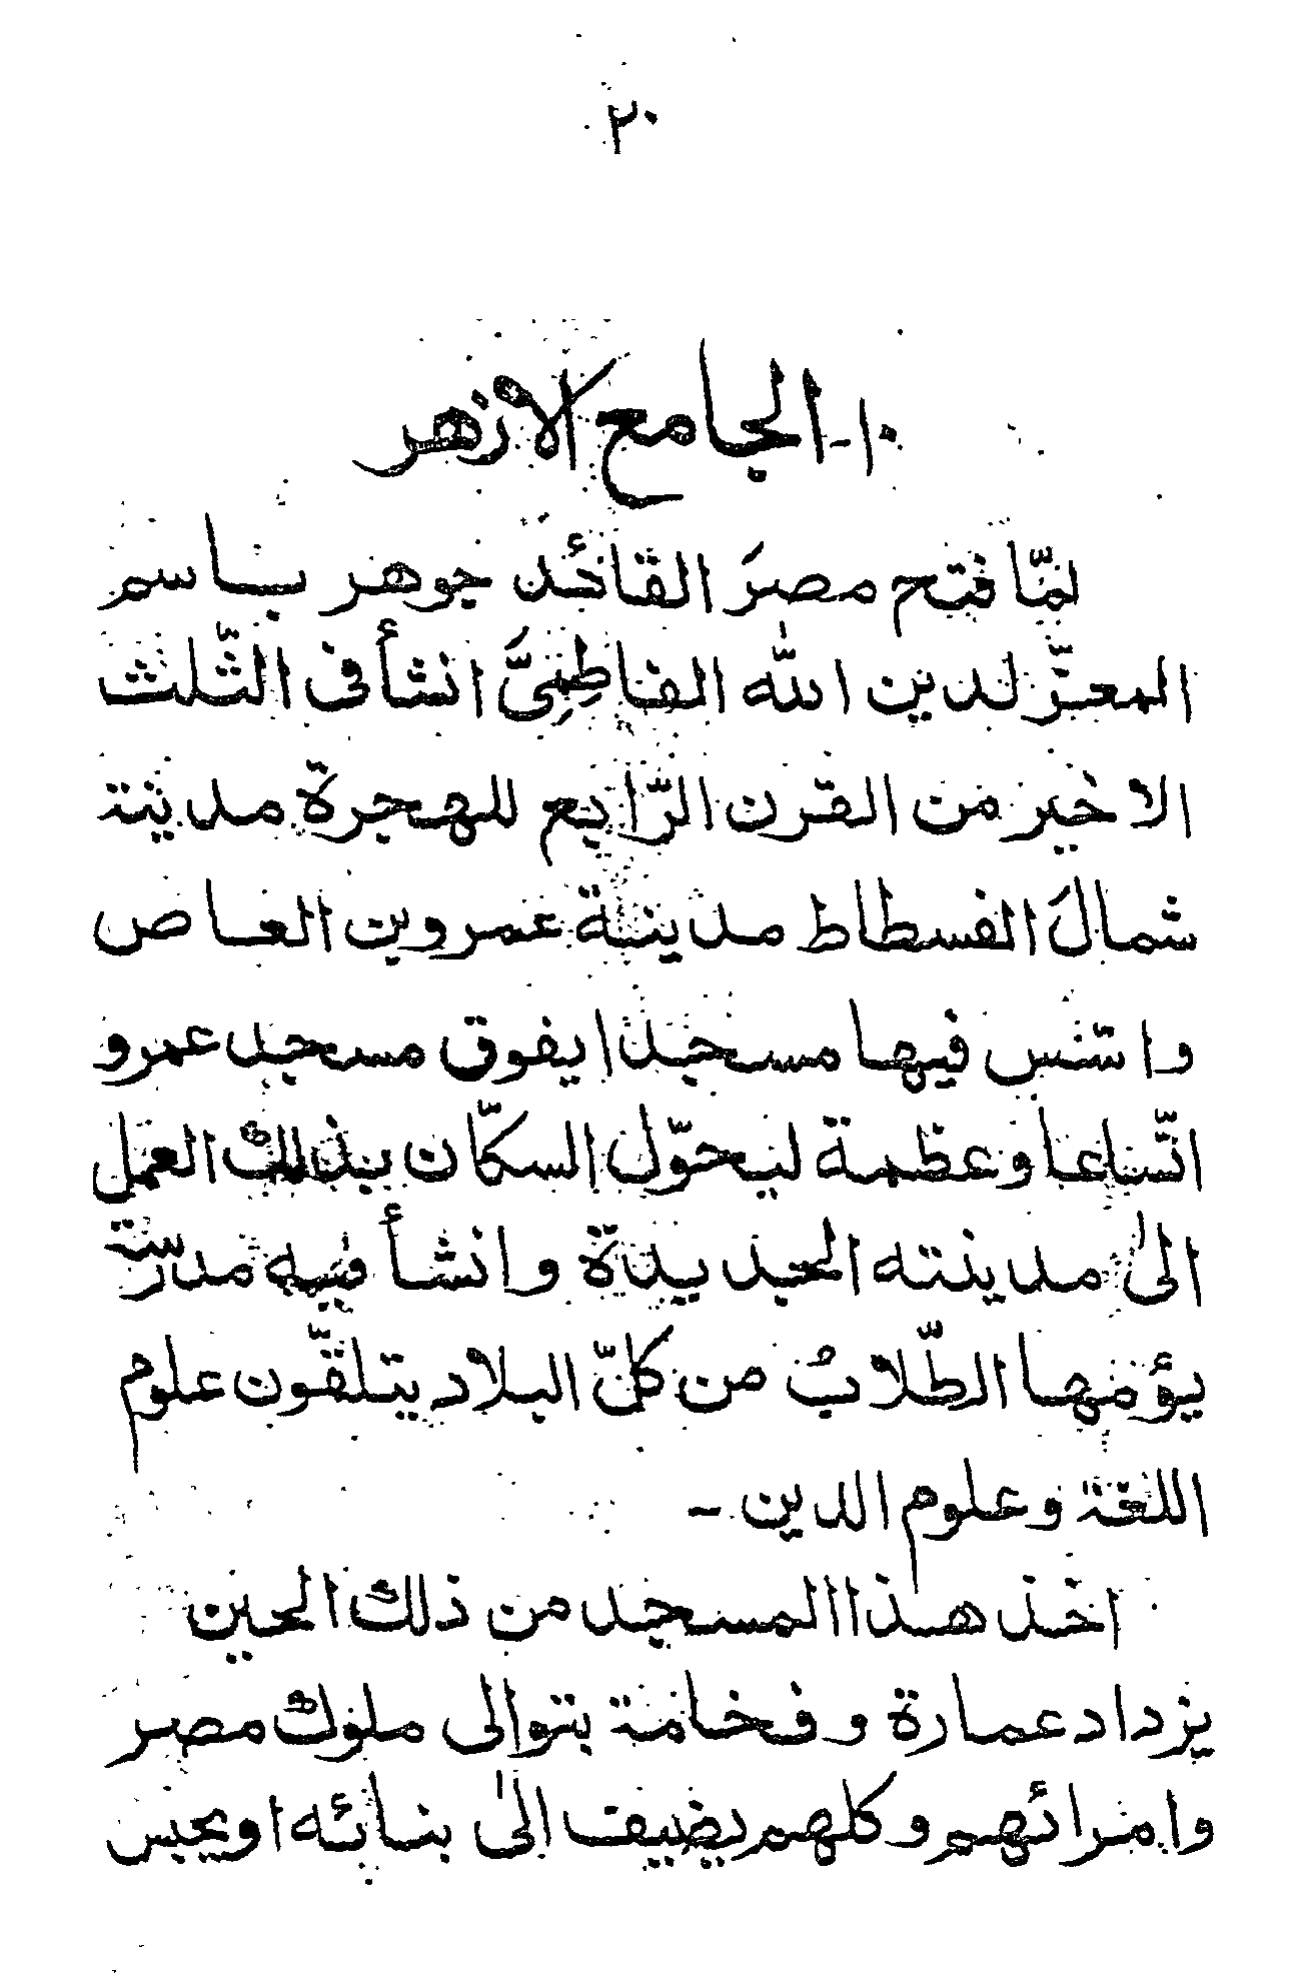 ٢٠
١٠ـ الجامع الازهر
لمّا فتح مصرَ القائد جوهر باسم
المعزّ لدين الله الفاطِمِيَّ انشأ فى الثّلث
الاخير من القرن الرّابع للهجرة مدينة
شمالَ الفسطاط مدينة عمروبن العاص
واسّس فيها مسجدا يفوق مسجد عمرو
اتّساعا وعظمة ليحوّل السكّان بذلك العمل
الىٰ مدينته الجديدة وانشأ فيه مدرسة
يؤمها الطّلابُ من كلّ البلاد يتلقّون علوم
اللغة وعلوم الدين ـ
اخذ هذا المسجد من ذلك الحين
يزداد عمارة و فخامة بتوالى ملوك مصر
وامرائهم وكلهم يضيف الىٰ بنائه اويحبس